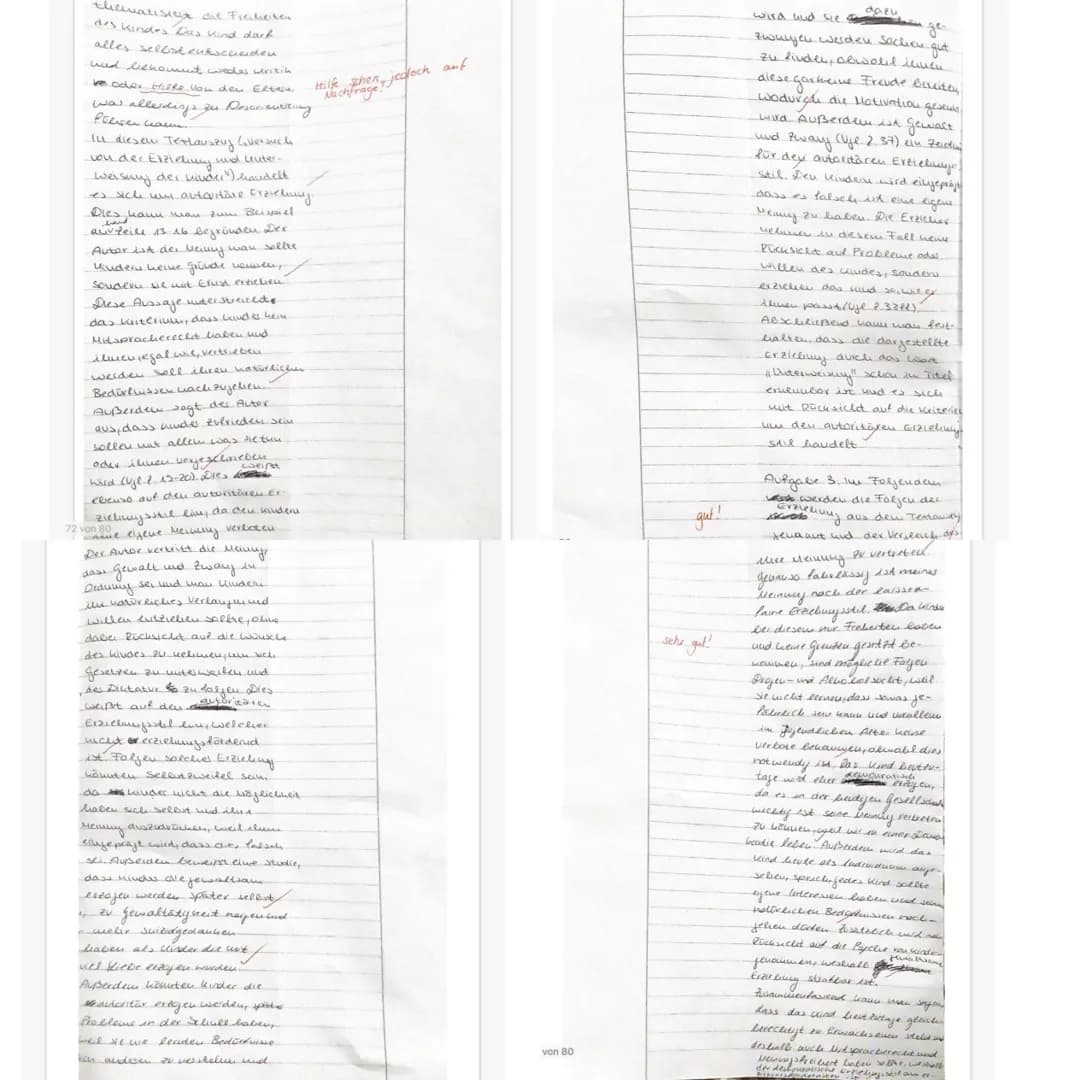 thematisiert die Freiheiten
des Kindes. Das Kind darf
alles selbst entscheiden
und bekommt weder Kritik
oder Hilfe von den Eltern,
was allerdings zu Desorientierung
führen kann.
Hilfe schon, jedoch auf
Nachfrage!
In diesem Textauszug („Versuch
von der Erziehung und Unter-
weisung der Kinder") handelt
es sich um autoritäre Erziehung.
Dies kann man zum Beispiel
Zeile 13-16 begründen. Der
Autor ist der Meinung man sollte
Kindern keine Gründe nennen,
sondern sie mit Ernst erziehen.
Diese Aussage unterstreicht
das Kriterium, dass Kinder kein
Mitspracherecht haben und
ihnen, egal wie, vertrieben
werden soll ihren natürlichen
Bedürfnissen nachzugehen.
Außerdem sagt der Autor
aus, dass Kinder zufrieden sein
sollen mit allem was sie tun
oder ihnen vorgeschrieben
wird (Vgl. Z. 19-20). Dies weißt
ebenso auf den autoritären Er-
ziehungsstil hin, da den Kindern
eine eigene Meinung verboten
72 von 80
wird und sie dazu ge-
zwungen werden Sachen gut
zu finden, obwohl ihnen
diese gar keine Freude bereiten,
wodurch die Motivation gesenkt
wird. Außerdem ist Gewalt
und Zwang (Vgl. Z. 37) ein Zeichen
für den autoritären Erziehungs-
stil. Den Kindern wird eingeprägt,
dass es falsch ist eine eigene
Meinung zu haben. Die Erzieher
nehmen in diesem Fall keine
Rücksicht auf Probleme oder
Willen des Kindes, sondern
erziehen das Kind so, wie er
ihnen passt (Vgl. Z. 33ff).
Abschließend kann man fest-
halten, dass die dargestellte
Erziehung durch das Wort
„Unterweisung" schon im Titel
erkennbar ist und es sich
mit Rücksicht auf die Kriterien
um den autoritären Erziehungs-
stil handelt.
Aufgabe 3. Im Folgendem
werden die Folgen der
Erziehung aus dem Textauszug
gut!
genannt und der Vergleich
Der Autor vertritt die Meinung,
dass Gewalt und Zwang in
Ordnung sei und man Kindern
ihr natürliches Verlangen und
Willen entziehen sollte, ohne
dabei Rücksicht auf die Wünsche
des Kindes zu nehmen, um sich
Gesetzen zu unterwerfen und
der Diktatur zu folgen. Dies
weißt auf den autoritären
Erziehungsstil hin, welcher
nicht erziehungsfördernd
ist. Folgen solcher Erziehung
könnten Selbstzweifel sein,
da Kinder nicht die Möglichkeit
haben sich selbst und ihre
Meinung auszudrücken, weil ihnen
eingeprägt wird, dass dies falsch
sei. Außerdem beweist eine Studie,
dass Kinder die gewaltsam
erzogen werden später selbst
zu Gewalttätigkeit neigen und
mehr Suizidgedanken
haben als Kinder die mit
viel Liebe erzogen wurden.
Außerdem könnten Kinder die
autoritär erzogen werden, später
Probleme in der Schule haben,
weil sie nie lernten Bedürfnisse
von anderen zu verstehen und
ihre Meinung zu vertreten.
Genauso fahrlässig ist meiner
Meinung nach der laissez-
faire Erziehungsstil. Da Kinder
bei diesem nur Freiheiten haben
sehr gut!
und keine Grenzen gesetzt be-
kommen, sind mögliche Folgen
Drogen- und Alkoholsucht, weil
sie nicht lernen, dass sowas ge-
fährlich sein kann und vorallem
im Jugendlichen Alter keine
Verbote bekommen, obwohl dies
notwendig ist. Das Kind heutzu-
tage wird eher demokratisch erzogen,
da es in der heutigen Gesellschaft
wichtig ist seine Meinung vertreten
zu können, weil wir in einer Demo-
kratie leben. Außerdem wird das
Kind heute als Individuum ange-
sehen, sprich jedes Kind sollte
eigene Interessen haben und seinen
natürlichen Bedürfnissen nach-
gehen dürfen. Zusätzlich wird
Rücksicht auf die Psyche von Kindern
genommen, weshalb gewaltsame
Erziehung strafbar ist.
Zusammenfassend kann man sagen,
dass das Kind heutzutage gleich-
berechtigt zu Erwachsenen steht und
deshalb auch Mitspracherecht und
Meinungsfreiheit haben sollte, weshalb
der demokratische Erziehungsstil am
von 80